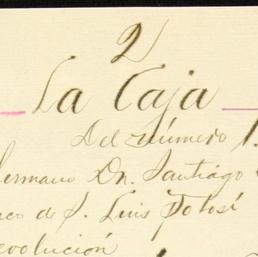 2
La Caja
Del número 1.
hermano Dn. Santiago
co de S. Luis Potosí
evolución